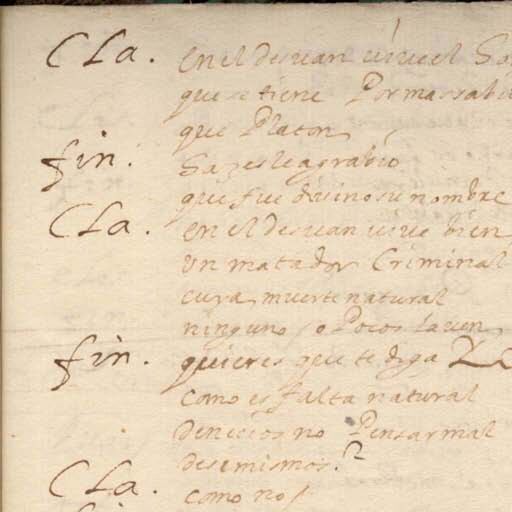 Cla. en el desuan uiue el
que se tiene Por mas sabi
que Platon
fin. hazesle agrabio
que fue diuino su nombre
Cla. en el desuan uiue bien
un matador Criminal
cuya muerte natural
ninguno o Pocos la uen
fin. quieres que te diga
como es falta natural
de necios no Pensar mal
de si mismos.
Cla. como no